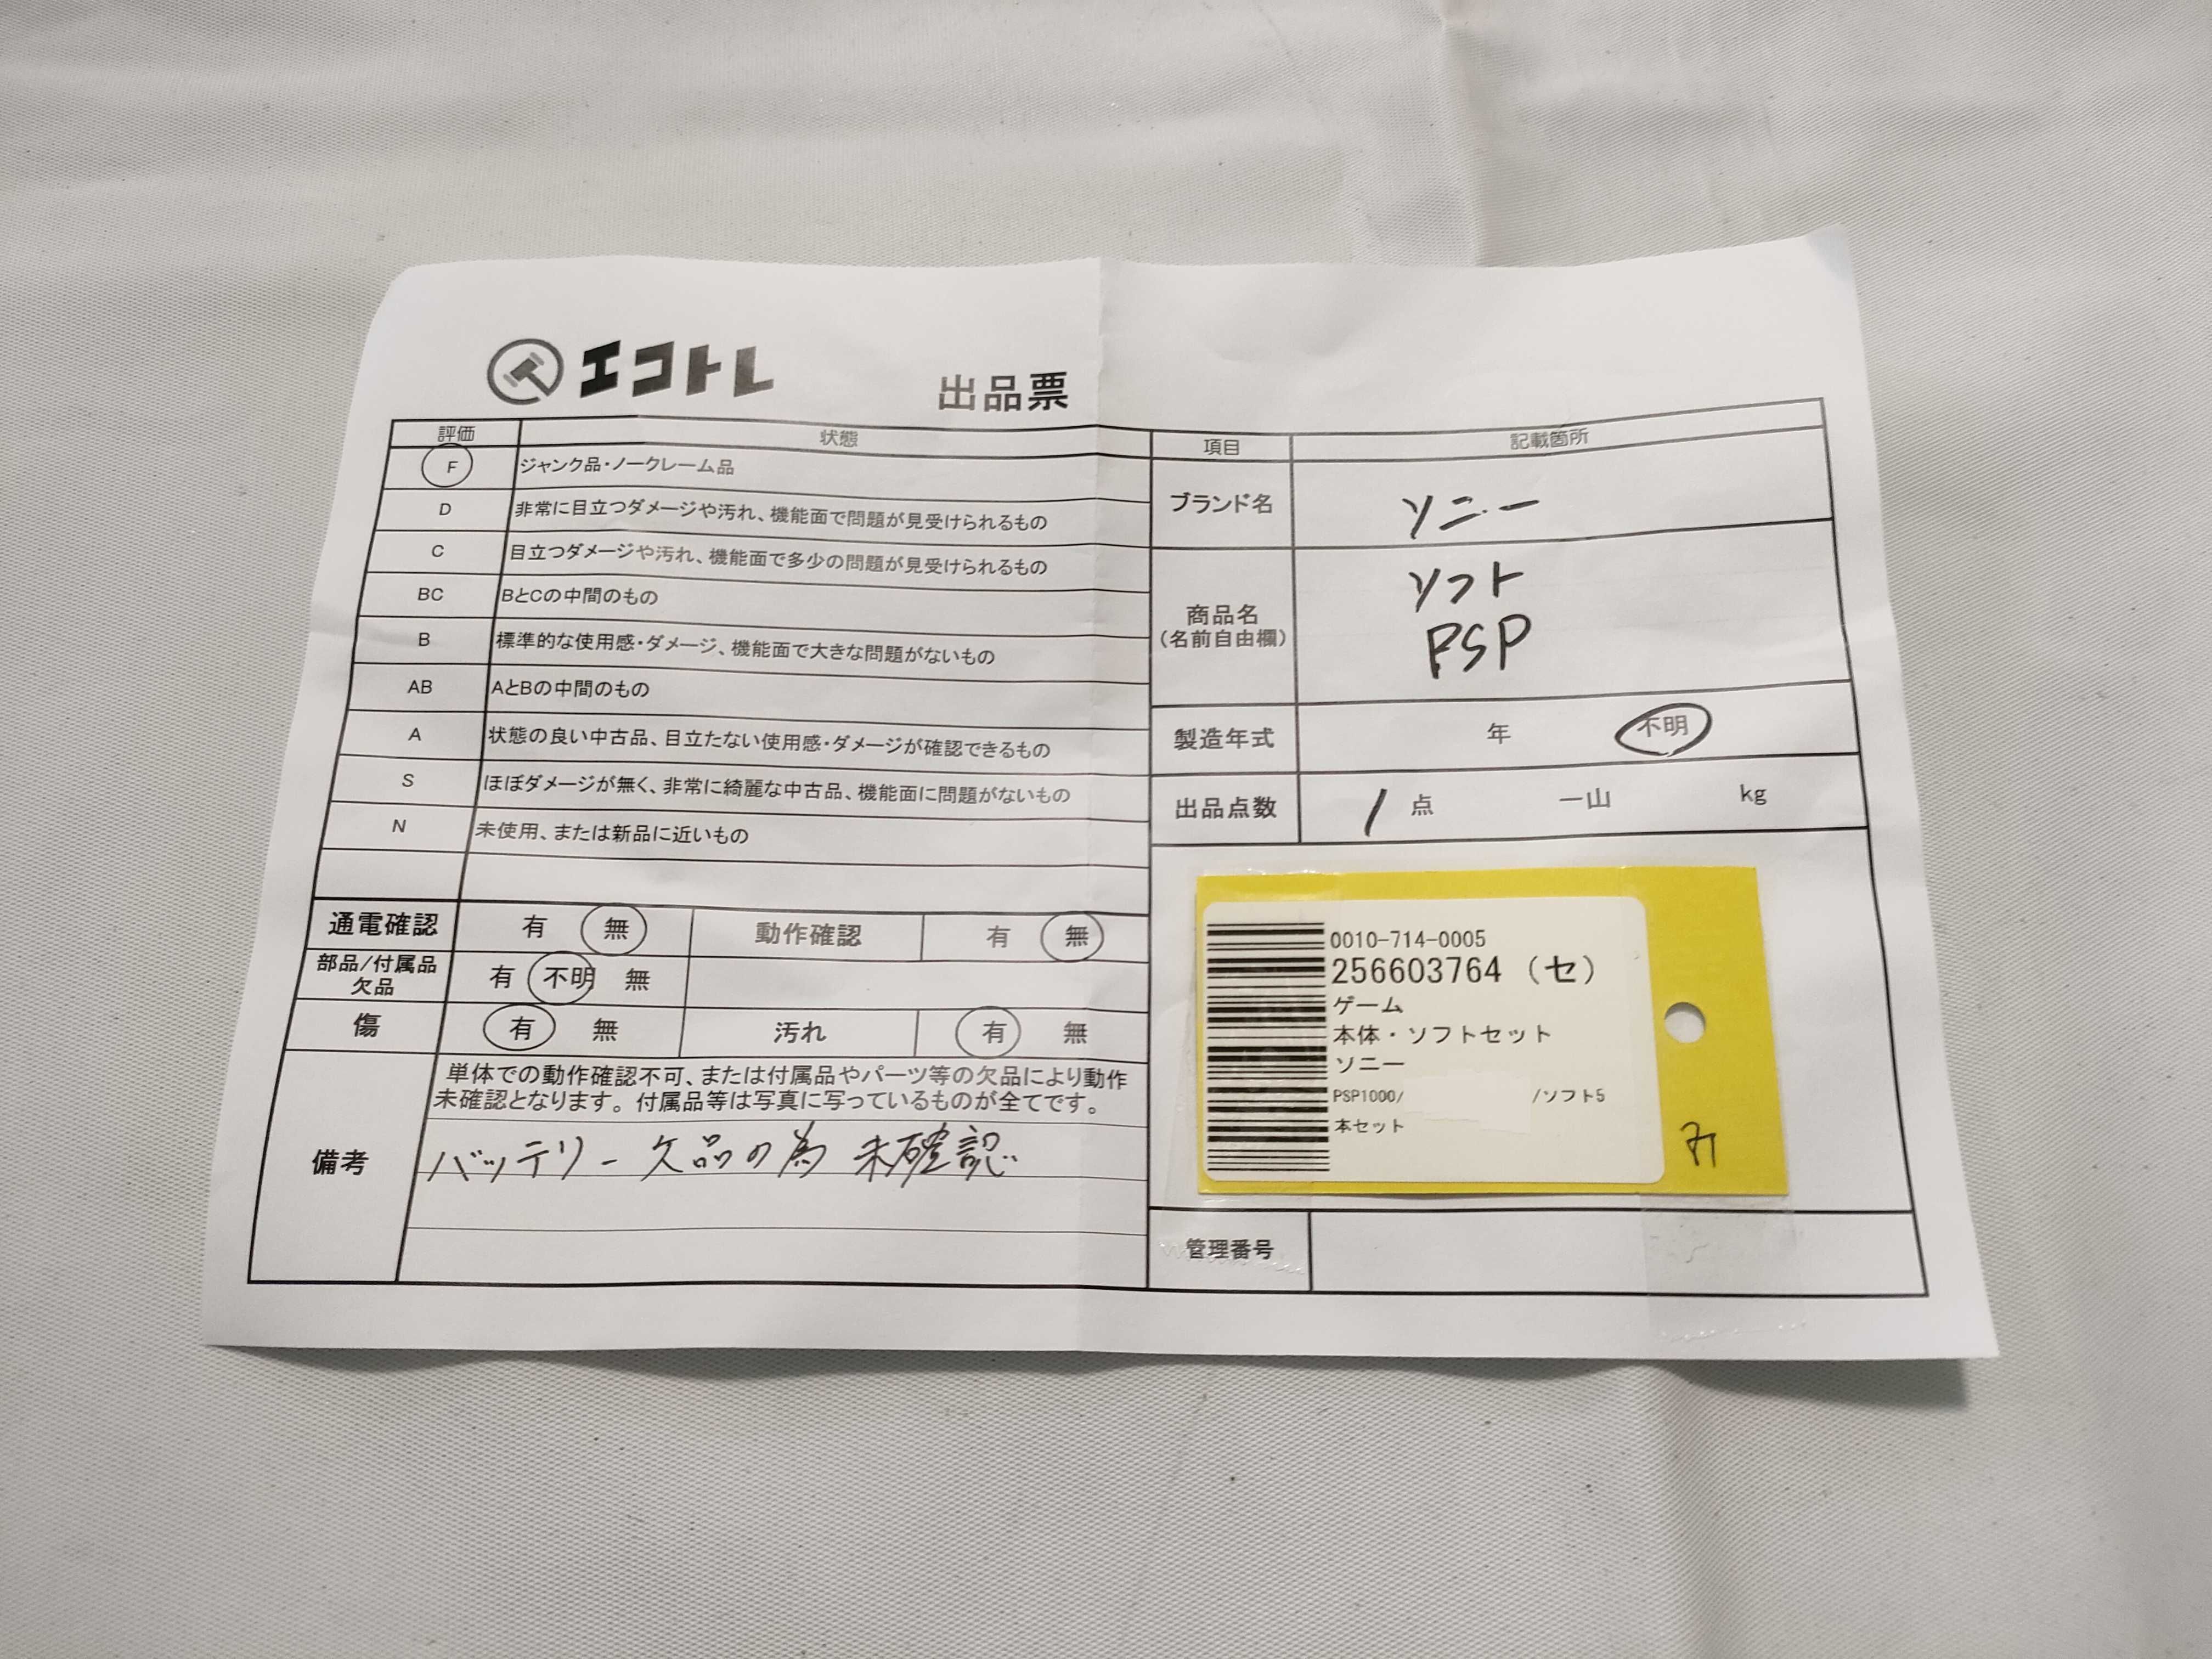 エコトレ 出品票
評価 状態
F ジャンク品・ノークレーム品
D 非常に目立つダメージや汚れ、機能面で問題が見受けられるもの
C 目立つダメージや汚れ、機能面で多少の問題が見受けられるもの
BC BとCの中間のもの
B 標準的な使用感・ダメージ、機能面で大きな問題がないもの
AB AとBの中間のもの
A 状態の良い中古品、目立たない使用感・ダメージが確認できるもの
S ほぼダメージが無く、非常に綺麗な中古品、機能面に問題がないもの
N 未使用、または新品に近いもの
通電確認 有 無 動作確認 有 無
部品/付属品
欠品 有 不明 無
傷 有 無 汚れ 有 無
備考
単体での動作確認不可、または付属品やパーツ等の欠品により動作
未確認となります。付属品等は写真に写っているものが全てです。
バッテリー欠品の為 未確認
項目 記載箇所
ブランド名 ソニー
商品名
(名前自由欄)
ソフト
PSP
製造年式 年 不明
出品点数 1 点 一山 kg
0010-714-0005
256603764 (セ)
ゲーム
本体・ソフトセット
ソニー
PSP1000/ /ソフト5
本セット
管理番号